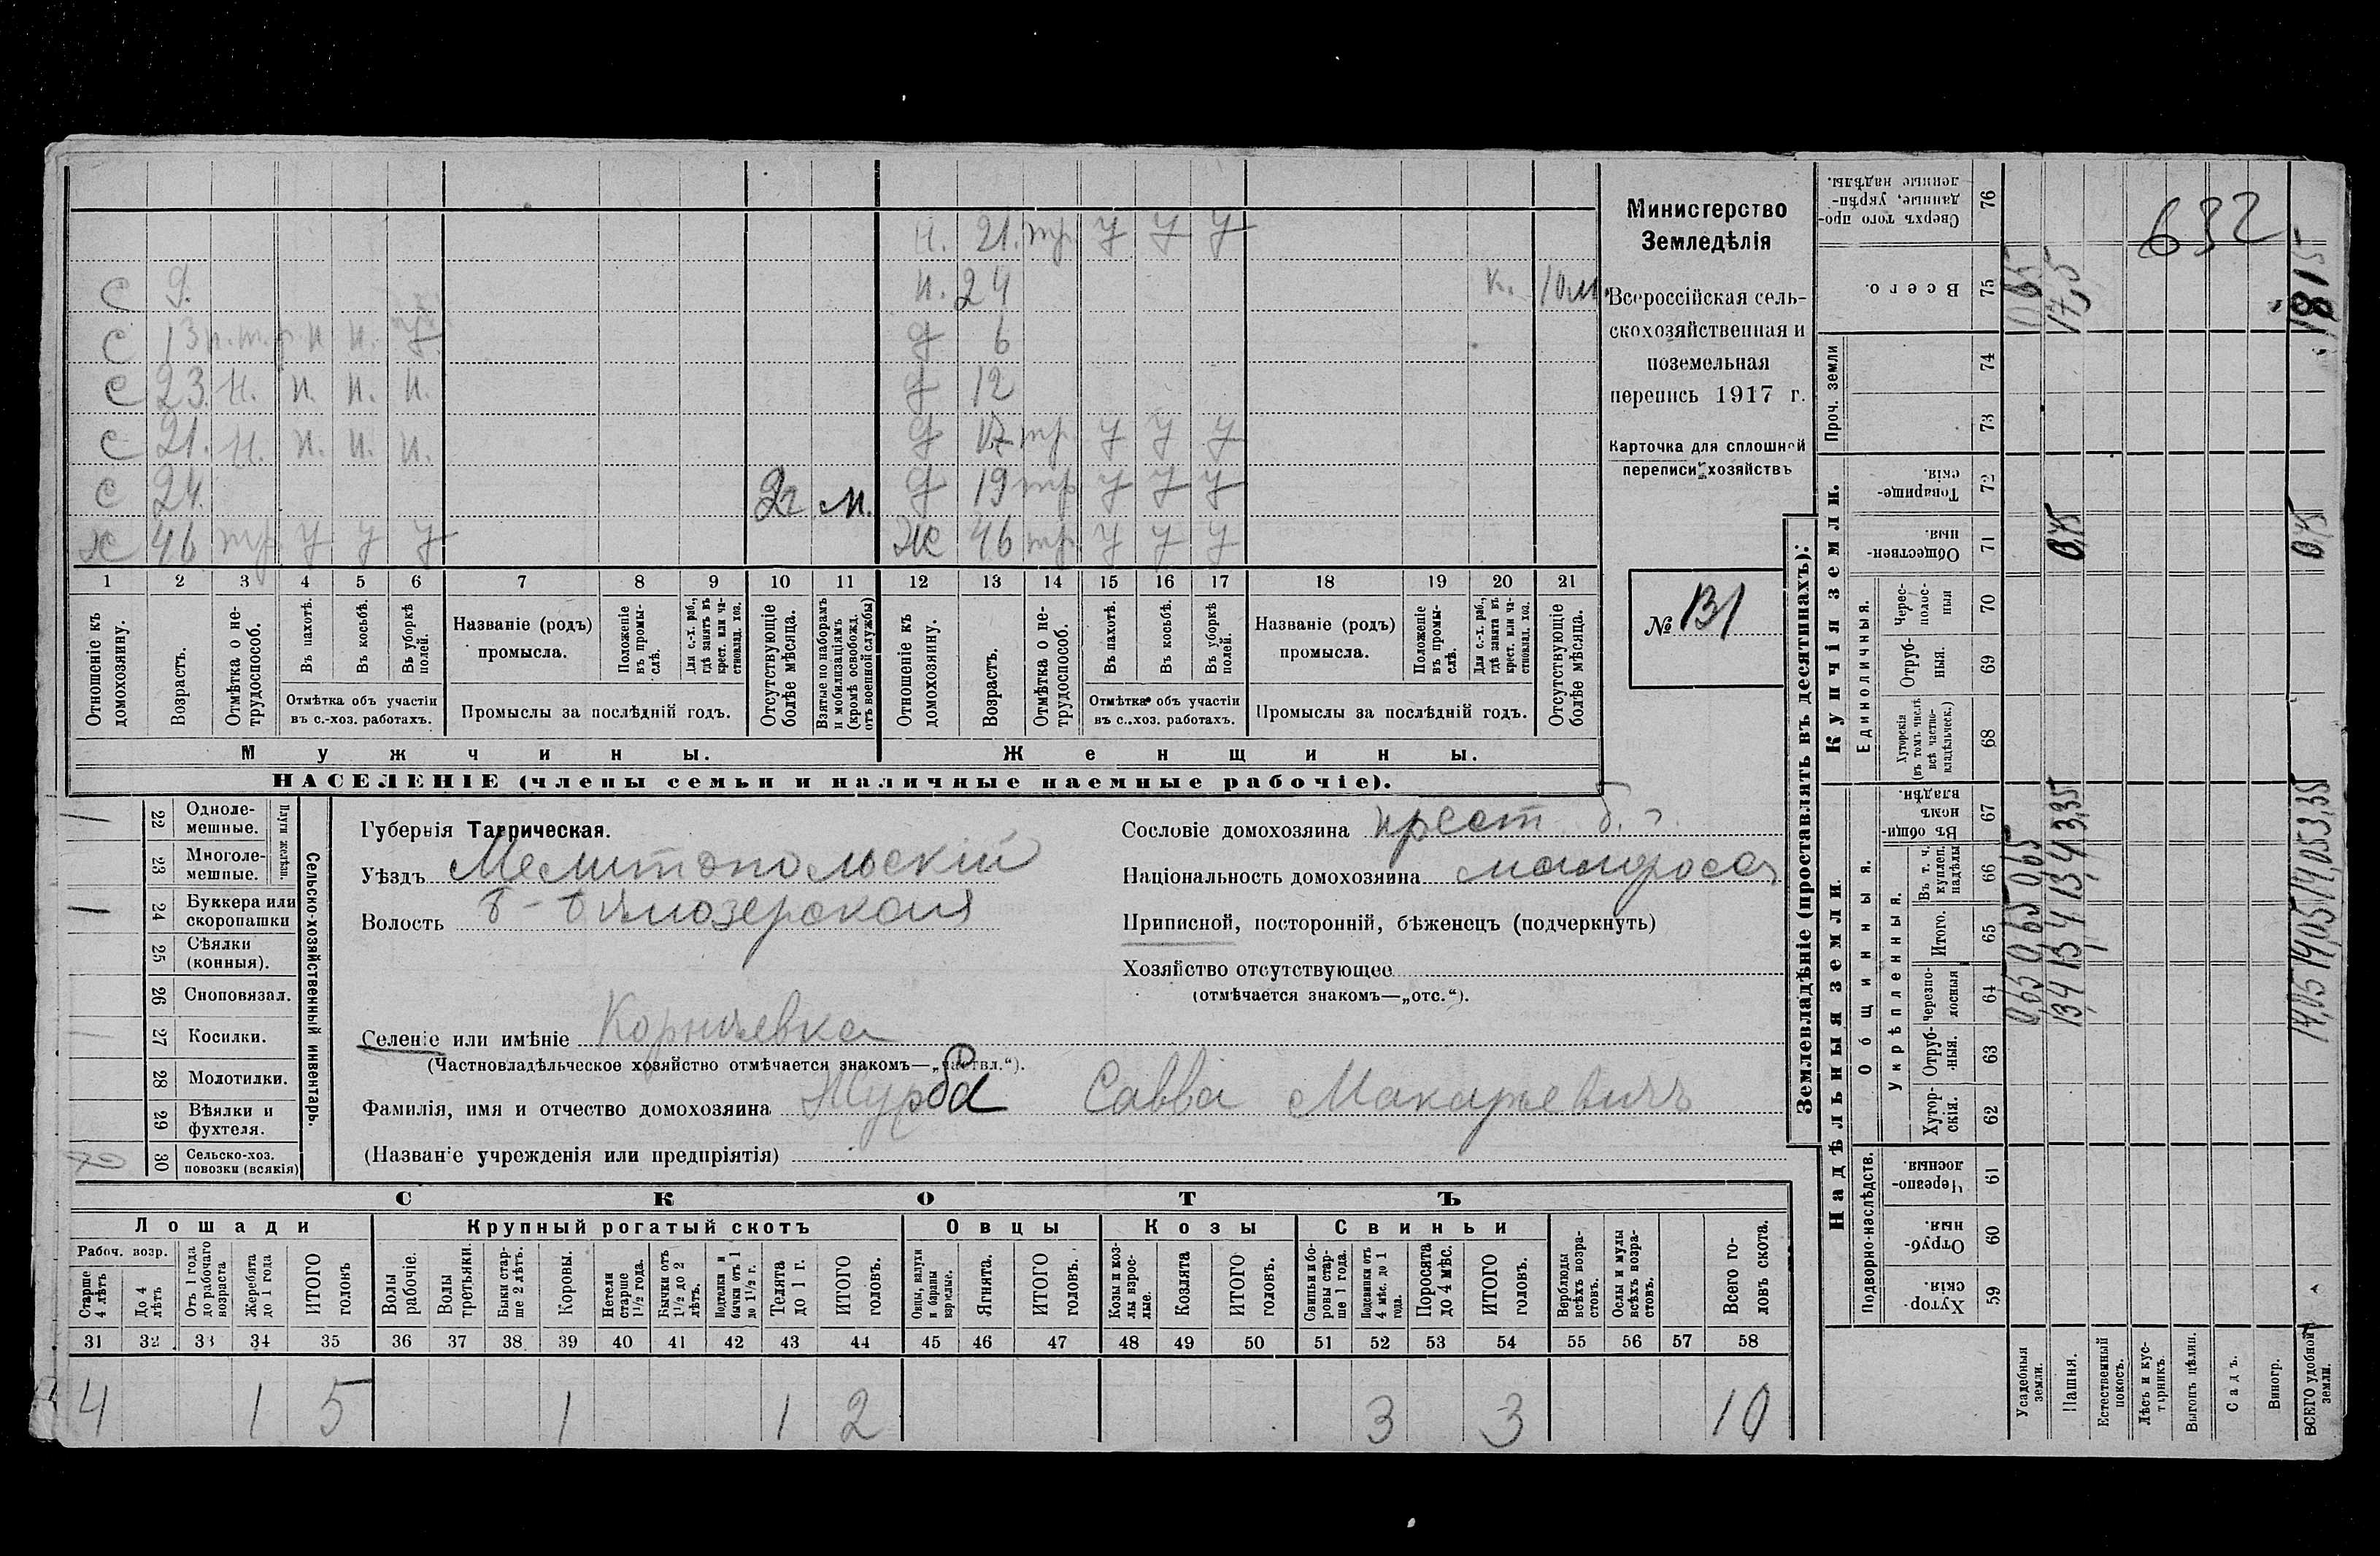 и. 21. тр. у у у
с 9. и. 24 к. 10 м.
с 13 п. т. р. и и. у д 6
с 23. и. и. и. и. д 12
с 21. и. и. и. и. д 17 тр. у у у
с 24. 2 г. м. д 19 тр у у у
ж 46 тр. у у у Ж 46 тр. у у у
1 2 3 4 5 6 7 8 9 10 11 12 13 14 15 16 17 18 19 20 21
Отношеніе къ домохозяину.
Возрастъ.
Отмѣтка о не-трудоспособ.
Въ пахотѣ.
Въ косьбѣ.
Въ уборкѣ полей.
Отмѣтка объ участіи
въ с.-хоз. работахъ.
Названіе (родъ)
промысла.
Положеніе въ промы-слѣ.
Для с.-х. раб., гдѣ занятъ въ крест. или ча-стновлад. хоз.
Промыслы за послѣдній годъ.
Отсутствующіе болѣе мѣсяца.
Взятые по наборамъ и мобилизаціямъ (кромѣ освобожд. отъ военной службы)
Отношеніе къ домохозяину.
Возрастъ.
Отмѣтка о не-трудоспособ.
Въ пахотѣ.
Въ косьбѣ.
Въ уборкѣ полей.
Отмѣтка объ участіи
въ с.-хоз. работахъ.
Названіе (родъ)
промысла.
Положеніе въ промы-слѣ.
Для с.-х. раб., гдѣ занята въ крест. или ча-стновлад. хоз.
Промыслы за послѣдній годъ.
Отсутствующіе болѣе мѣсяца.
Мужчины. Женщины.
НАСЕЛЕНІЕ (члены семьи и наличные наемные рабочіе).
Министерство
Земледѣлія
Всероссійская сель-
скохозяйственная и
поземельная
перепись 1917 г.
Карточка для сплошной
переписи хозяйствъ
№ 131
Сельско-хозяйственный инвентарь.
Плуги желѣзн.
22 Одноле-
мешные.
23 Многоле-
мешные.
24 Буккера или
скоропашки
25 Сѣялки
(конныя).
26 Сноповязал.
27 Косилки.
28 Молотилки.
29 Вѣялки и
фухтеля.
30 Сельско-хоз.
повозки (всякія)
Губернія Таврическая.
Уѣздъ Мелитопольскій
Волость Б-Бѣлозерская
Селеніе или имѣніе Корнѣевка
(Частновладѣльческое хозяйство отмѣчается знакомъ—„частвл.“).
Фамилія, имя и отчество домохозяина Журба Савва Макарьевичъ
(Названіе учрежденія или предпріятія)
Сословіе домохозяина крест.
Національность домохозяина малоросс
Приписной, посторонній, бѣженецъ (подчеркнуть)
Хозяйство отсутствующее
(отмѣчается знакомъ—„отс.“).
СКОТЪ
Лошади Крупный рогатый скотъ Овцы Козы Свиньи
Рабоч. возр.
Старше 4 лѣтъ
До 4 лѣтъ
Отъ 1 года до рабочаго возраста
Жеребята до 1 года
ИТОГО головъ
Волы рабочіе.
Волы третьяки.
Быки стар-ше 2 лѣтъ.
Коровы.
Нетели старше 1 1/2 года.
Бычки отъ 1 1/2 до 2 лѣтъ.
Подтелки и бычки отъ 1 до 1 1/2 г.
Телята до 1 г.
ИТОГО головъ.
Овцы, валухи и бараны взрослые.
Ягнята.
ИТОГО головъ.
Козы и коз-лы взрос-лые.
Козлята
ИТОГО головъ.
Свиньи и бо-ровы стар-ше 1 года.
Подсвинки отъ 4 мѣс. до 1 года.
Поросята до 4 мѣс.
ИТОГО головъ.
Верблюды всѣхъ возра-стовъ.
Ослы и мулы всѣхъ возра-стовъ.
Всего го-ловъ скота.
31 32 33 34 35 36 37 38 39 40 41 42 43 44 45 46 47 48 49 50 51 52 53 54 55 56 57 58
4 1 5 1 1 2 3 3 10
Землевладѣніе (проставлять въ десятинахъ):
Надѣльныя земли.
Купчія земли.
Проч. земли
Подворно-наслѣдств.
Общинныя.
Укрѣпленныя.
Единоличныя.
59 Хутор-скія.
60 Отруб-ныя.
61 Черезпо-лосныя.
62 Хутор-скія.
63 Отруб-ныя.
64 Черезпо-лосныя
65 Итого.
66 Въ т. ч. куплен. надѣлы
67 Въ общи-номъ владѣн.
68 Хуторскія (въ томъ числѣ всѣ частно-владѣльческ.)
69 Отруб-ныя.
70 Черес-полос-ныя
71 Обществен-ныя.
72 Товарище-скія.
73
74
75 Всего.
76 Сверхъ того про-данные, укрѣп-ленные надѣлы.
Усадебныя земли. 0,65 0,65 0,65 0,65
Пашня. 13,4 13,4 13,4 3,35 0,75 17,5
Естественный покосъ.
Лѣсъ и кус-тарникъ.
Выгонъ цѣлин.
Садъ.
Виногр.
ВСЕГО удобной земли. 14,05 14,05 14,05 3,35 0,75 18,15
632